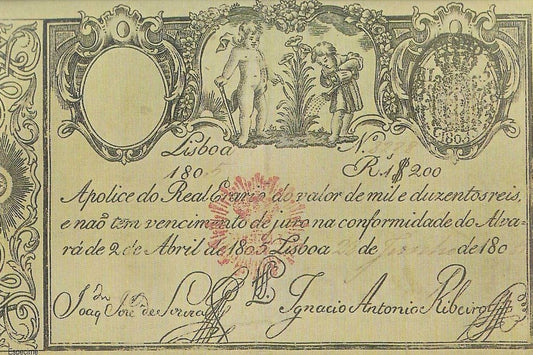 1804
Lisboa N.
1805 R. 1$200
Apolice do Real Erario do valor de mil e duzentos reis,
e naõ tem vencimento de juro na conformidade do Alva-
rá de 2 de Abril de 1805. Lisboa de de 180
Joaq. José de Souza Ignacio Antonio Ribeiro
Espécime